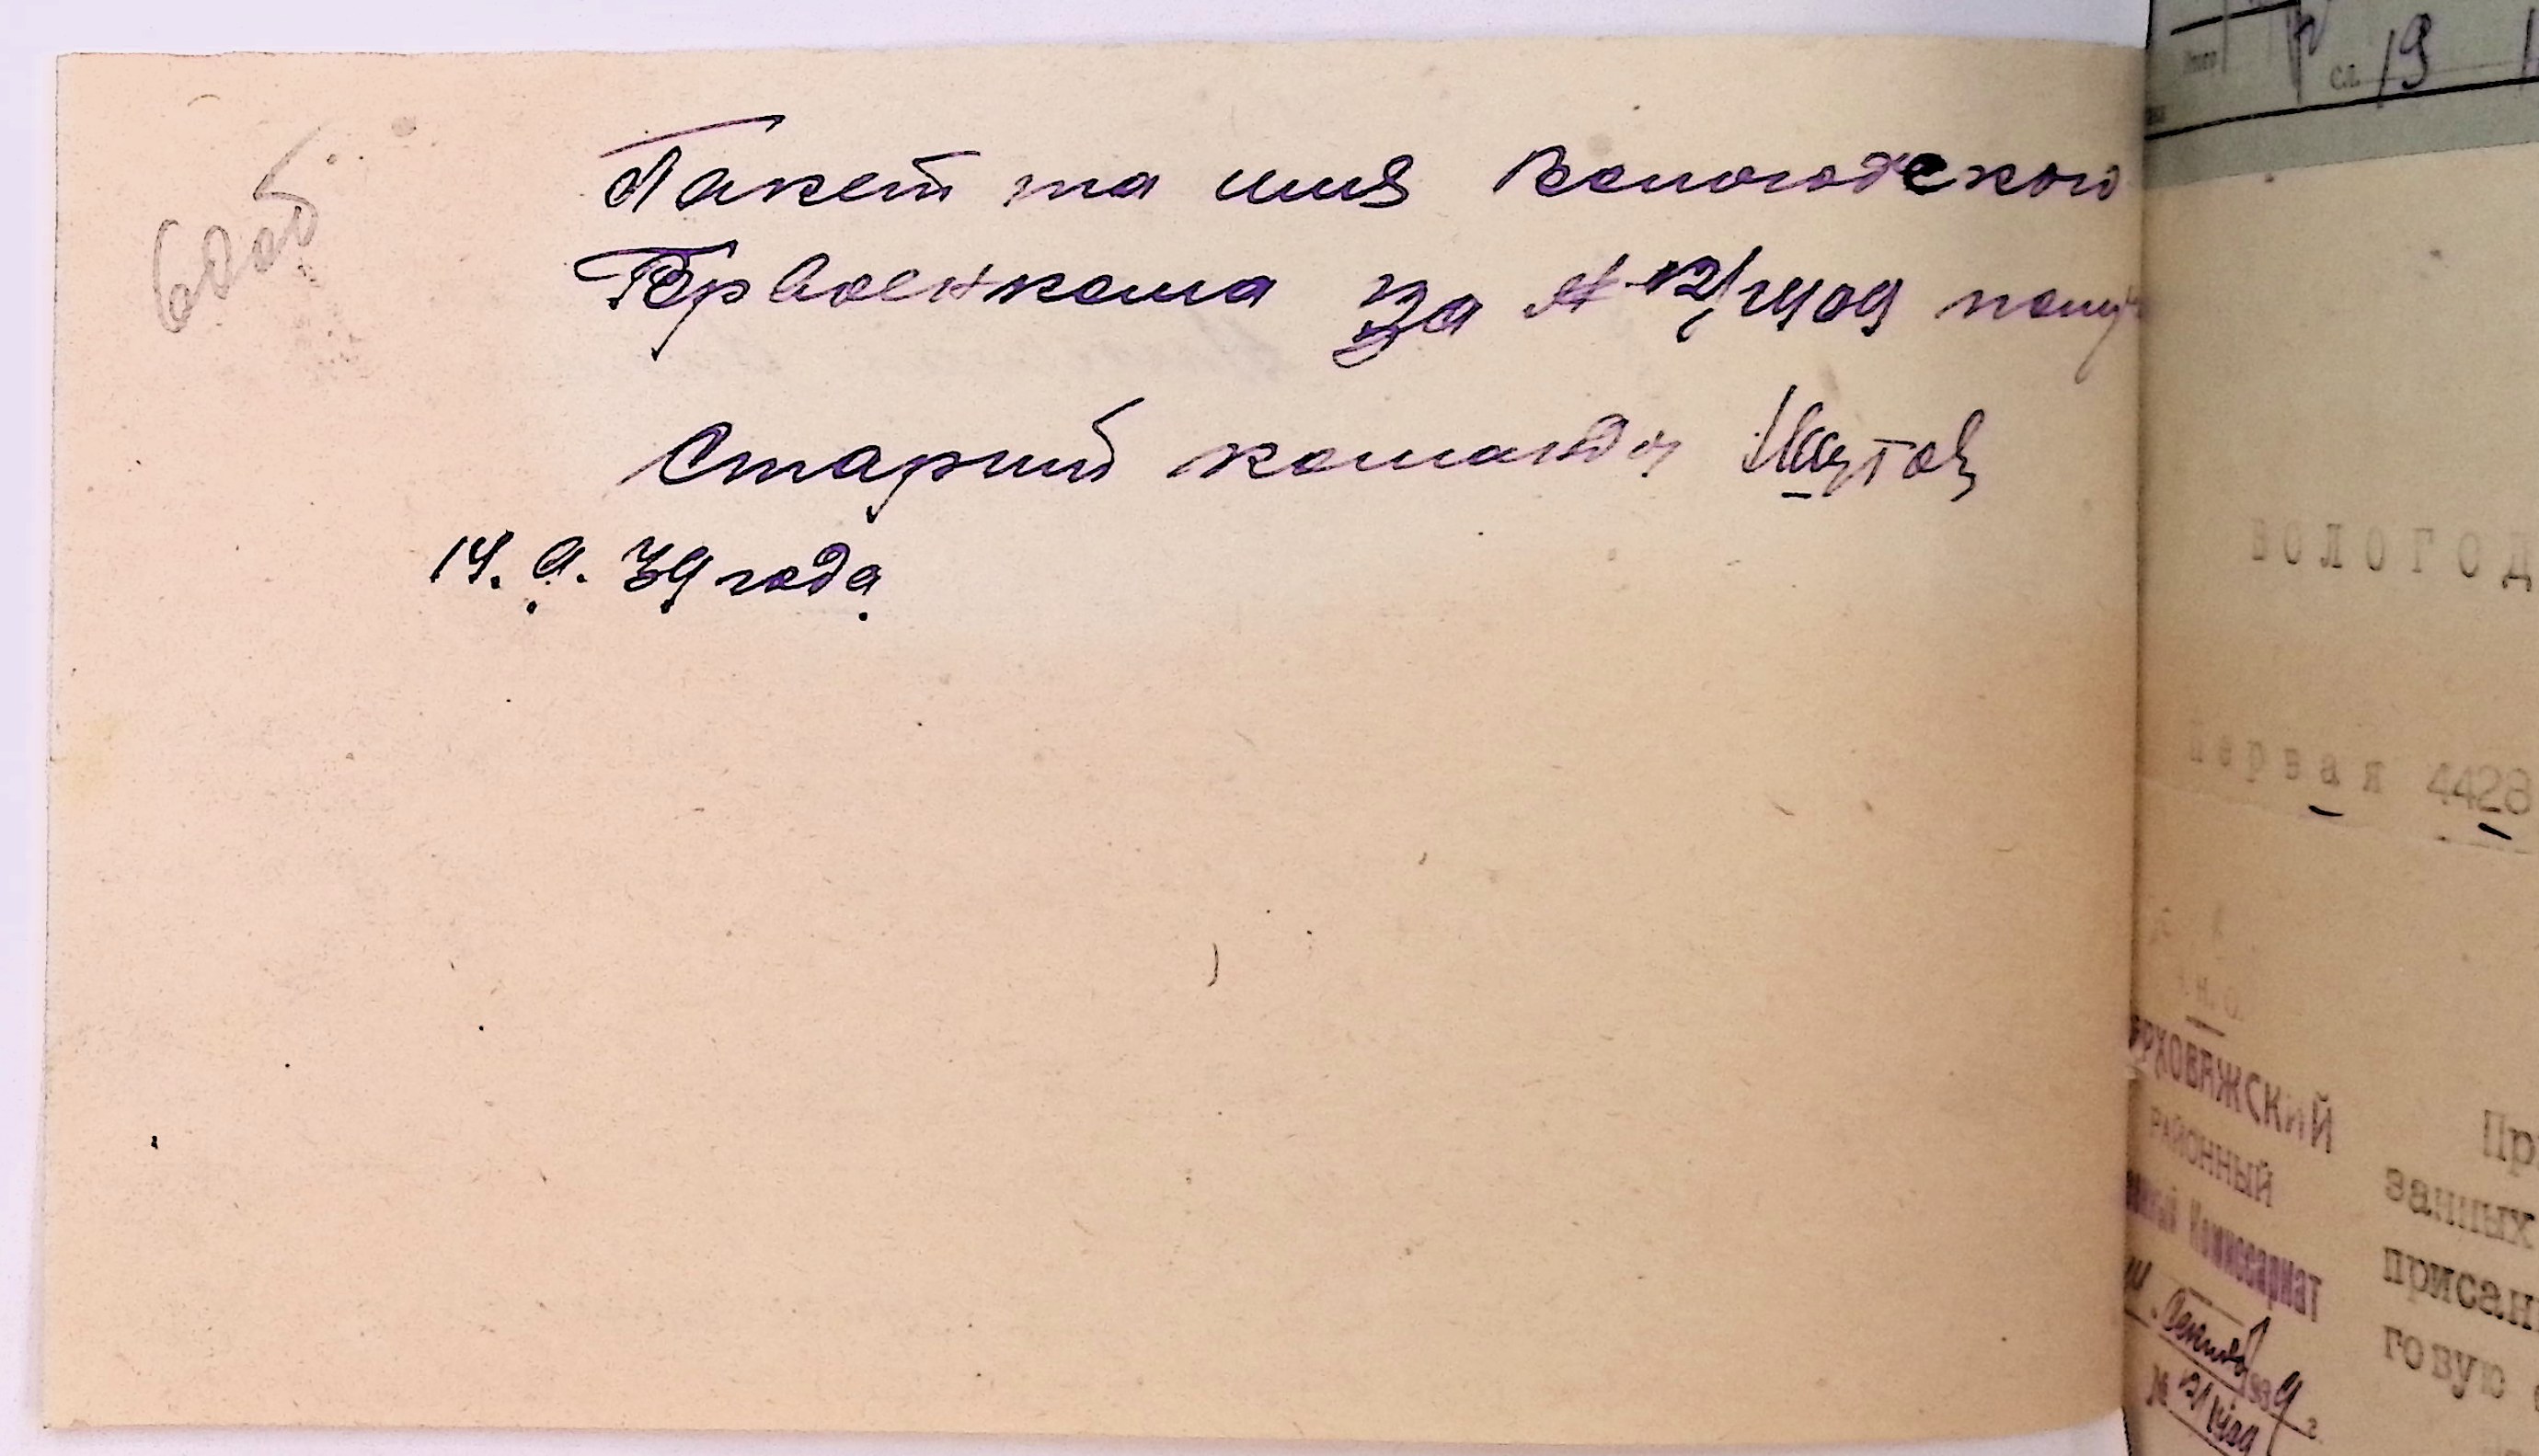 Пакет на имя Вологодского
Горвоенкома за № 12/1409 полу
Старший команды
14. 9. 39 года
сл. 19
ВОЛОГОД
Первая 4428
Н.О.
ЕРХОВАЖСКИЙ
РАЙОННЫЙ
Комиссариат
Сентяб 1939 г.
№ 12/1409
Пр
занных
присан
говую